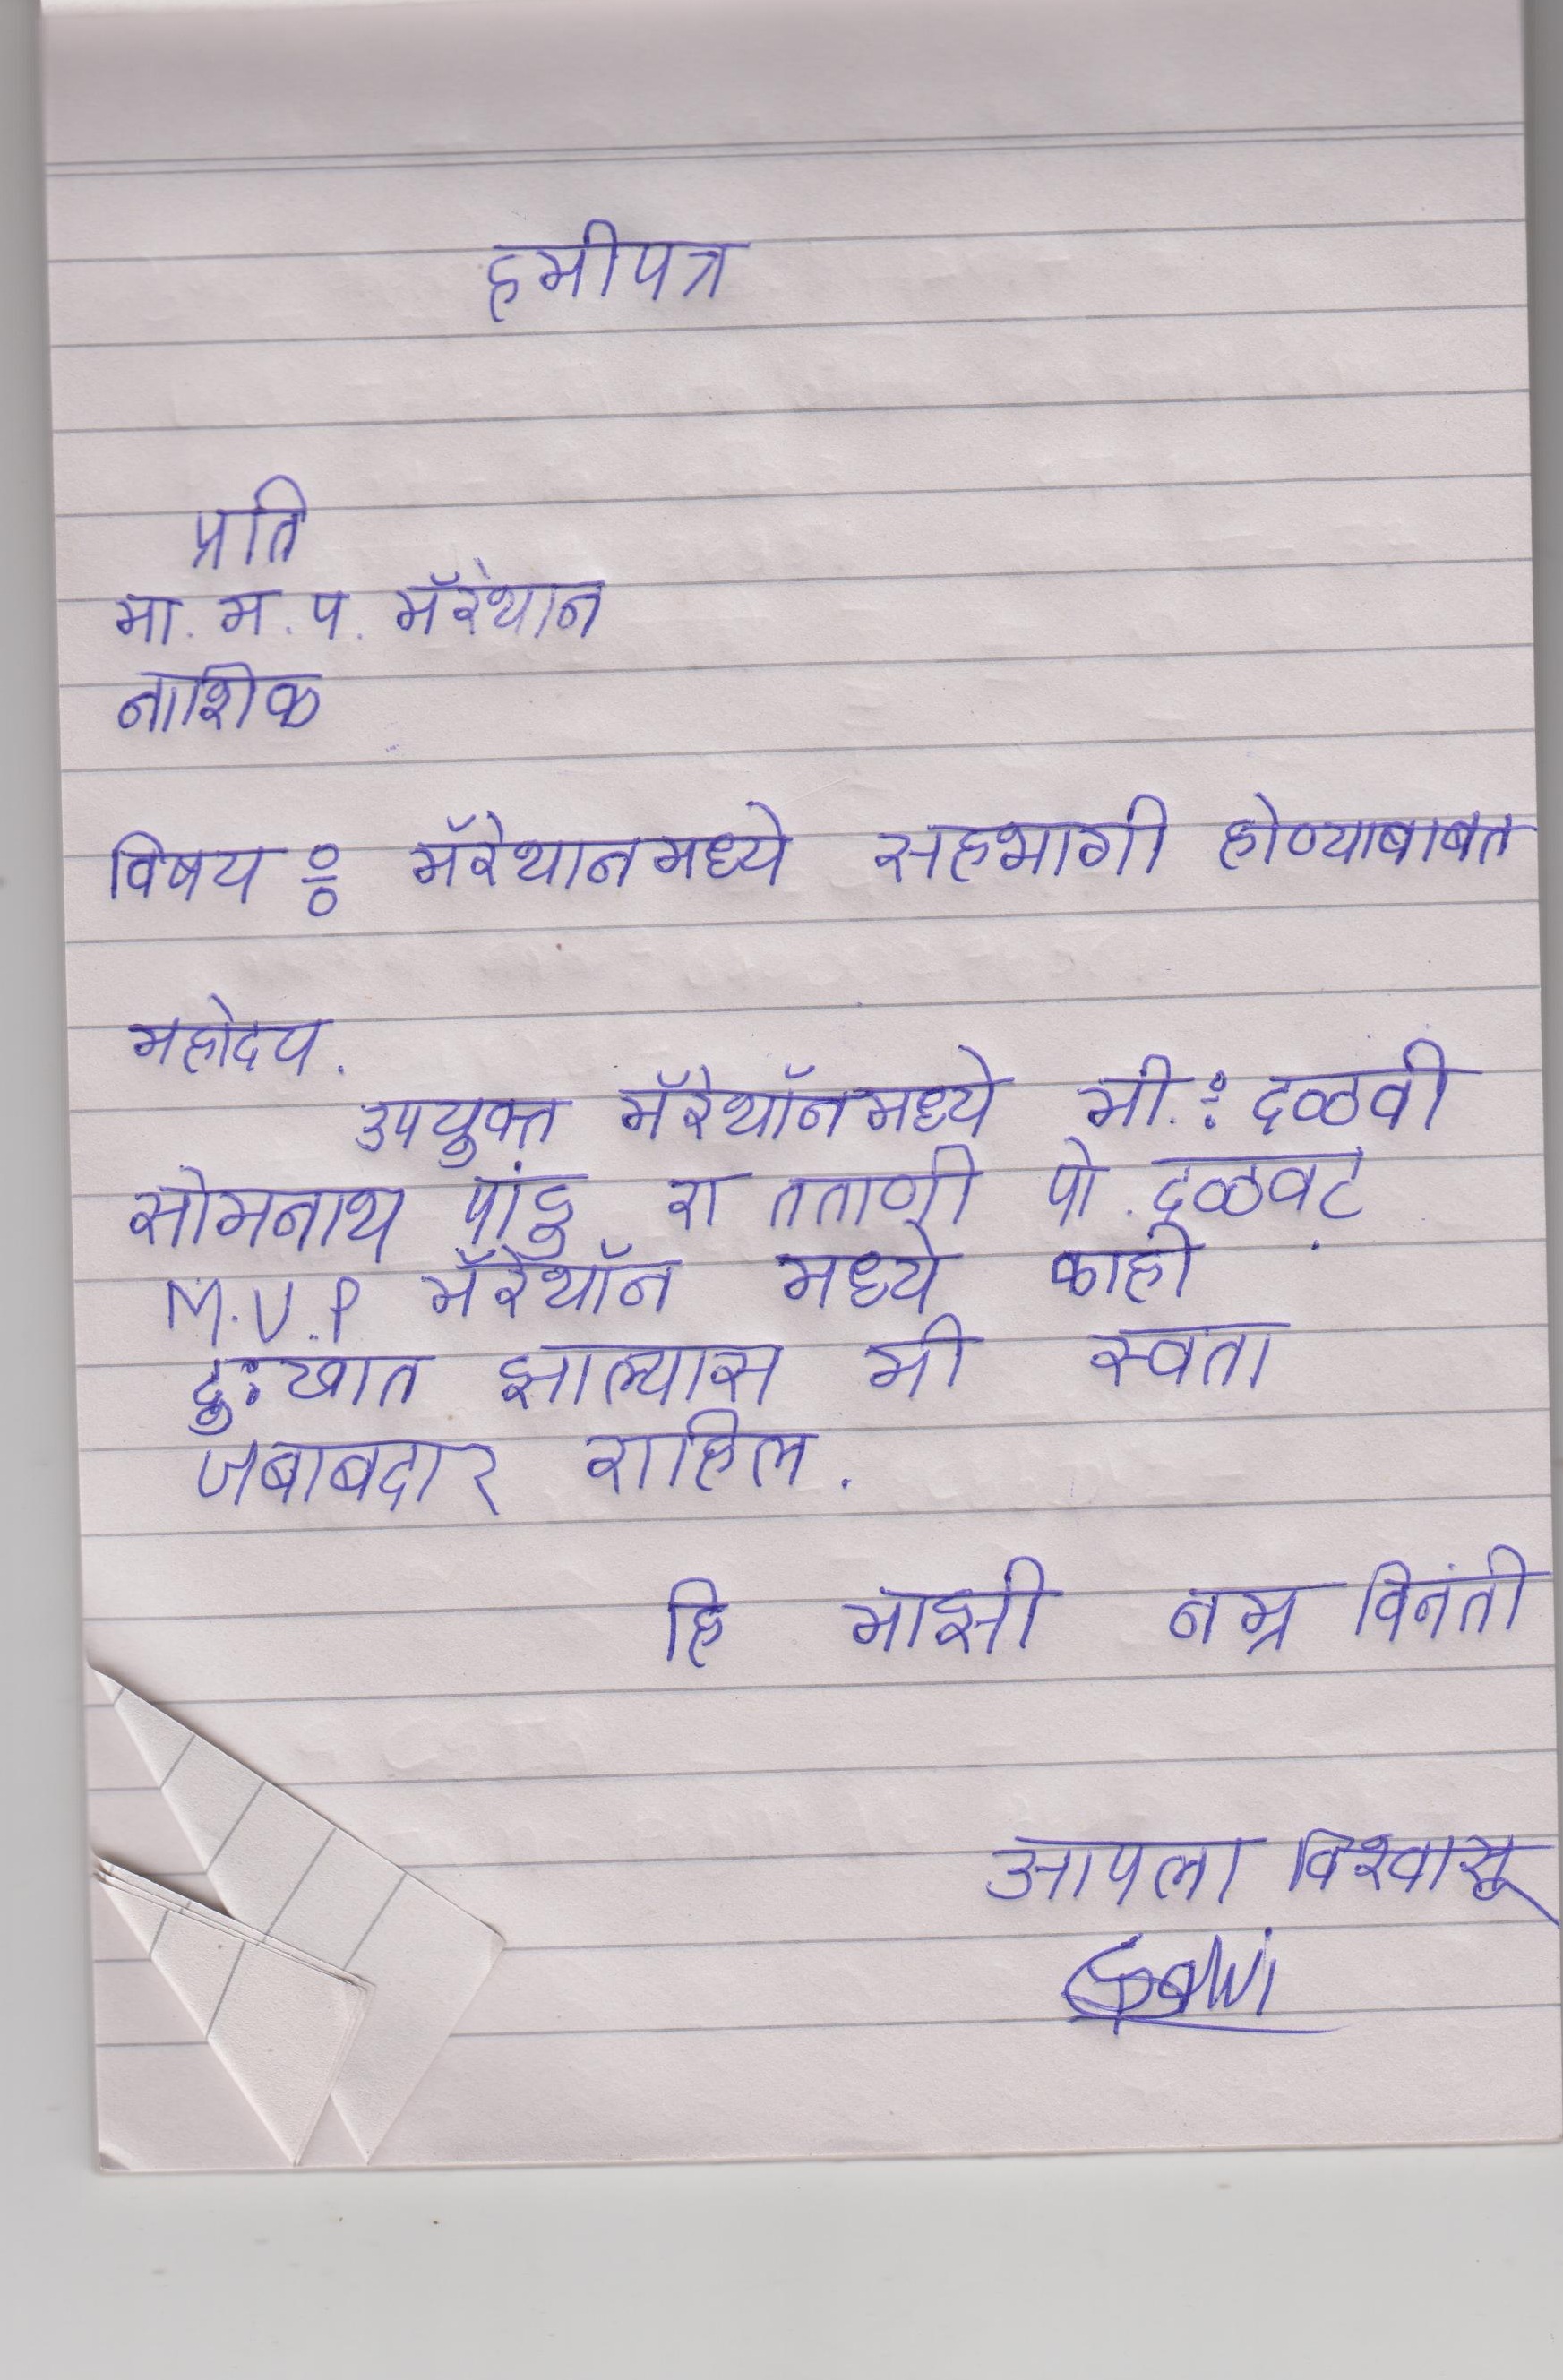 हमीपत्र
प्रति
मा. म. प. मॅरेथान
नाशिक
विषय ः मॅरेथानमध्ये सहभागी होण्याबाबत
महोदय.
उपयुक्त मॅरेथॉनमध्ये मी. : दळवी
सोमनाथ पांडु रा तताणी पो. दळवट
M.V.P मॅरेथॉन मध्ये काही
दुःखात झाल्यास मी स्वता
जबाबदार राहिल.
हि माझी नम्र विनंती
आपला विश्वासू